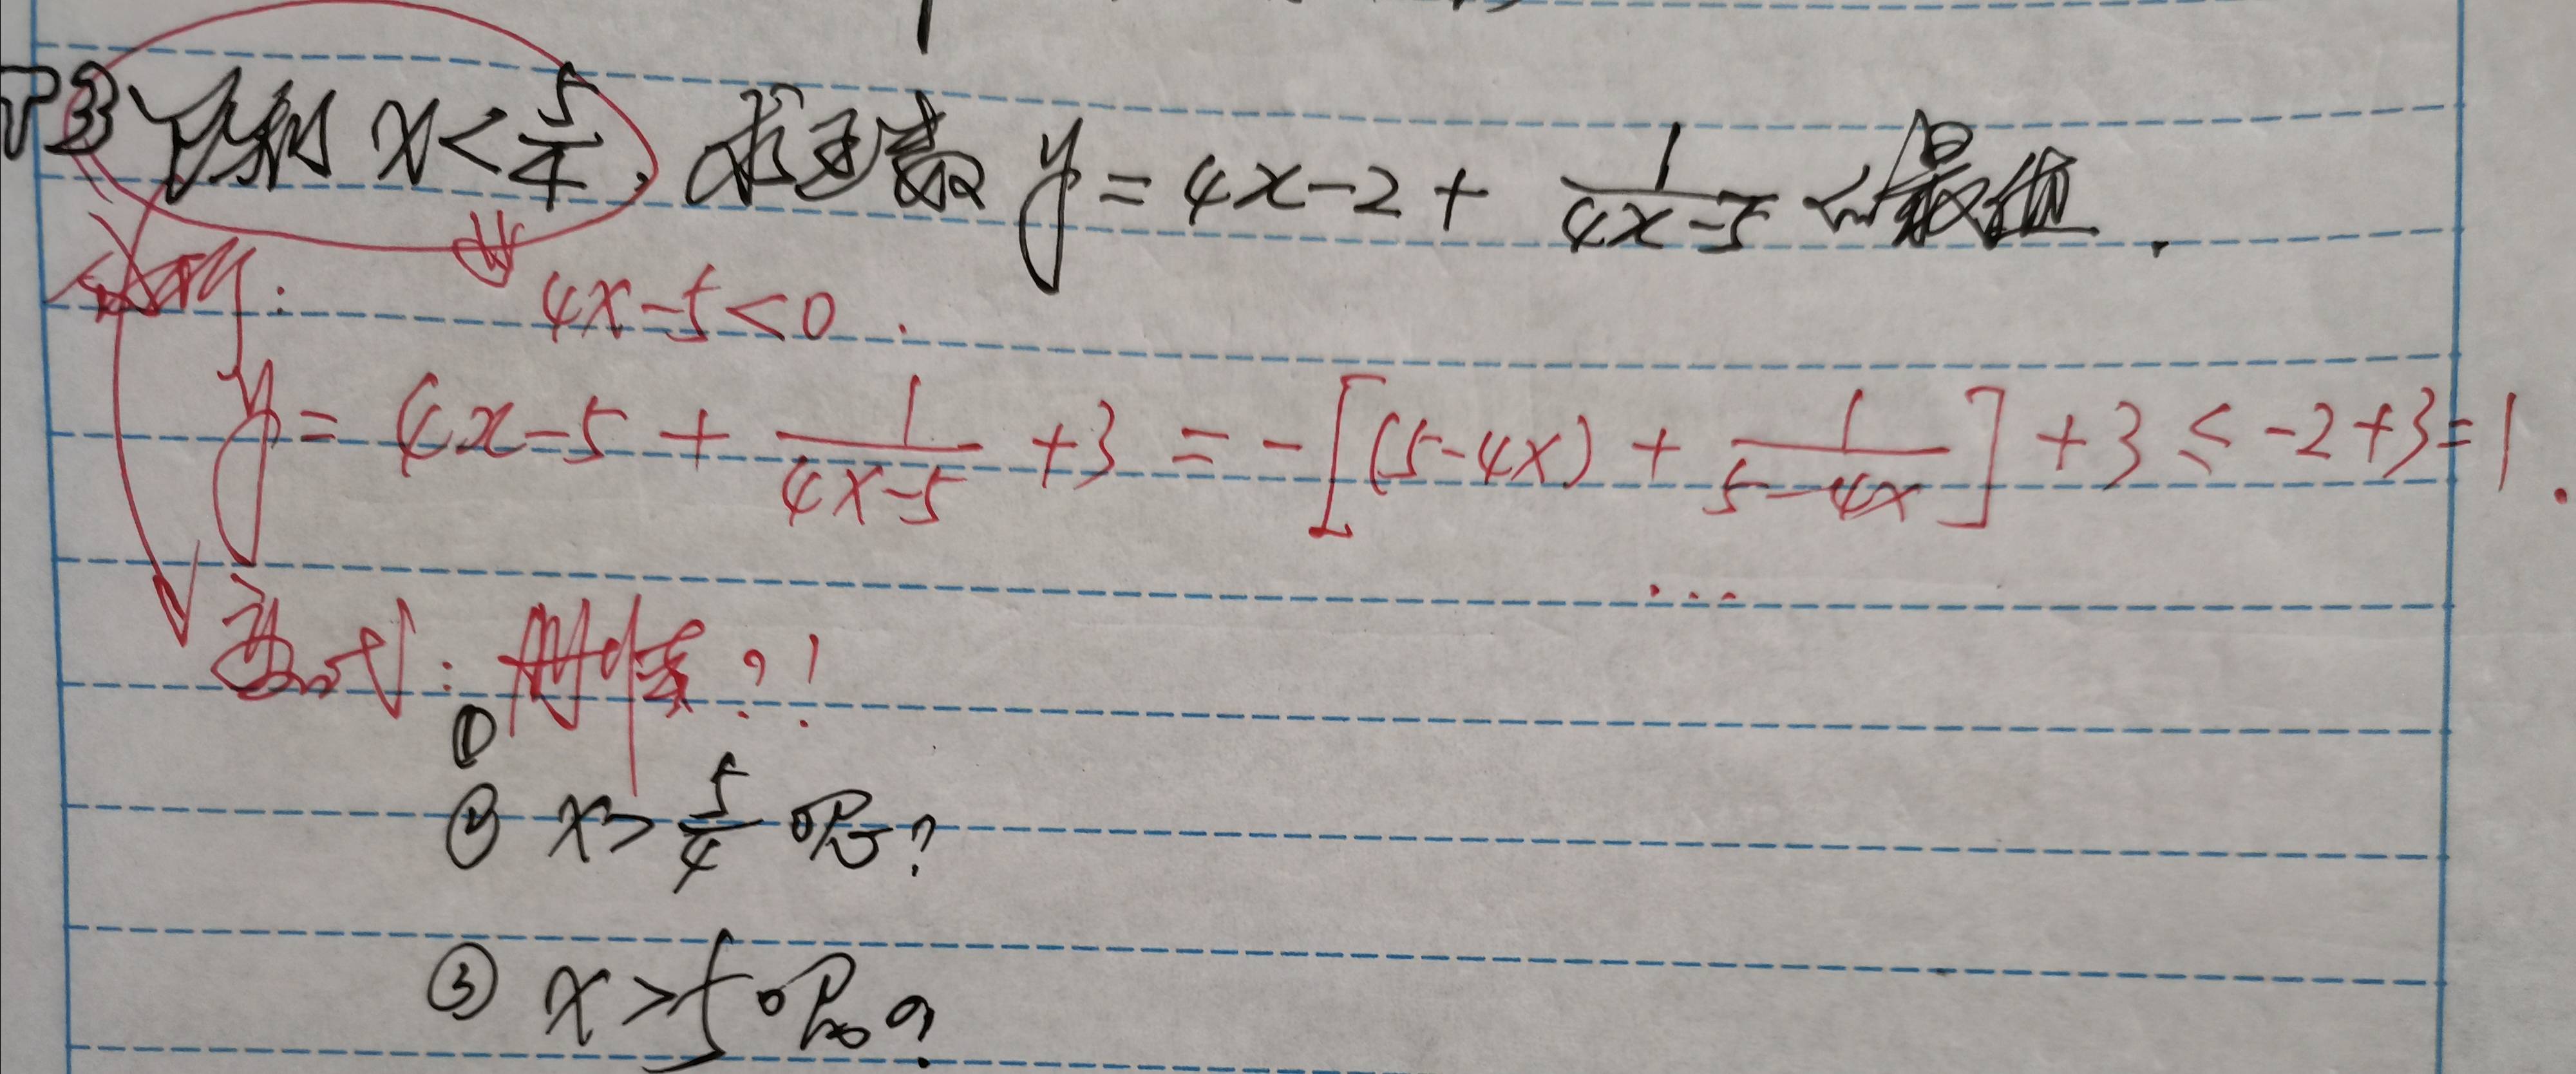 T3 已知 x<5/4, 求函数 y=4x-2+1/(4x-5) 的最值.
分析: 4x-5<0.
y=4x-5+1/(4x-5)+3=-[(5-4x)+1/(5-4x)]+3≤-2+3=1.
...
变式: 删除?!
①
② x>5/4 呢?
③ x>5呢?